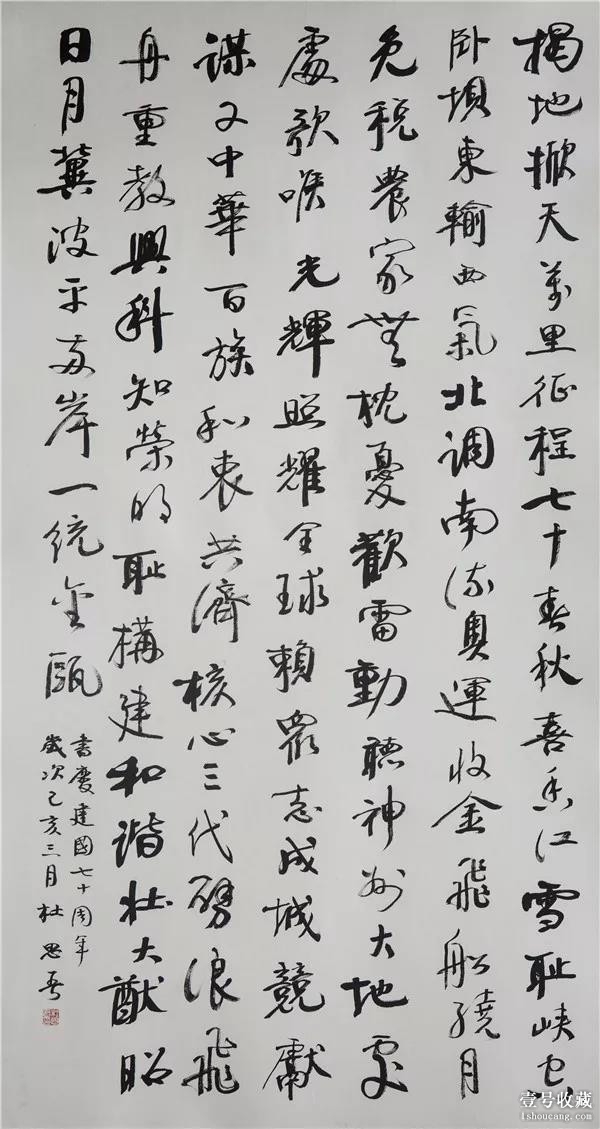 揭地掀天萬里征程七十春秋喜香江雪耻峽
卧壩東輸西氣北調南流奧運收金飛船繞月
免税農家無枕憂歡雷動聽神州大地處
處歌喉光輝照耀全球賴眾志成城競獻
謀又中華百族和衷共濟核心三代劈浪飛
舟重教興科知榮明耻構建和諧壯大猷昭
日月冀波平兩岸一統金甌
書慶建國七十周年
歲次己亥三月杜思
壹号收藏
1shoucang.com